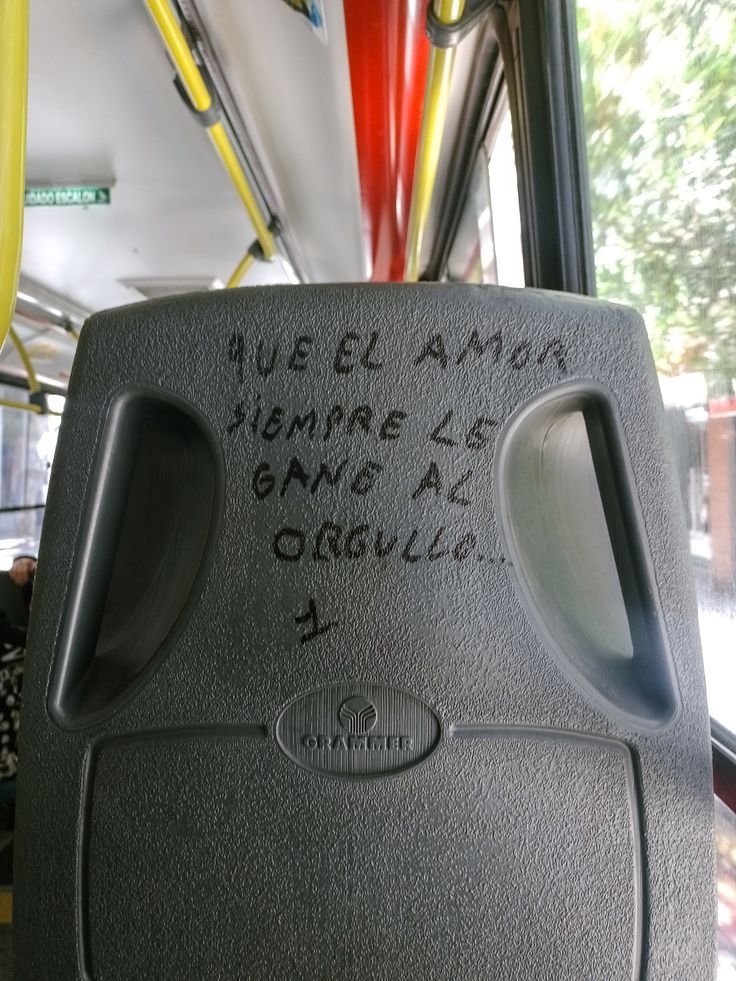 IDADO ESCALON
QUE EL AMOR
SIEMPRE LE
GANE AL
ORGULLO...
1
GRAMMER